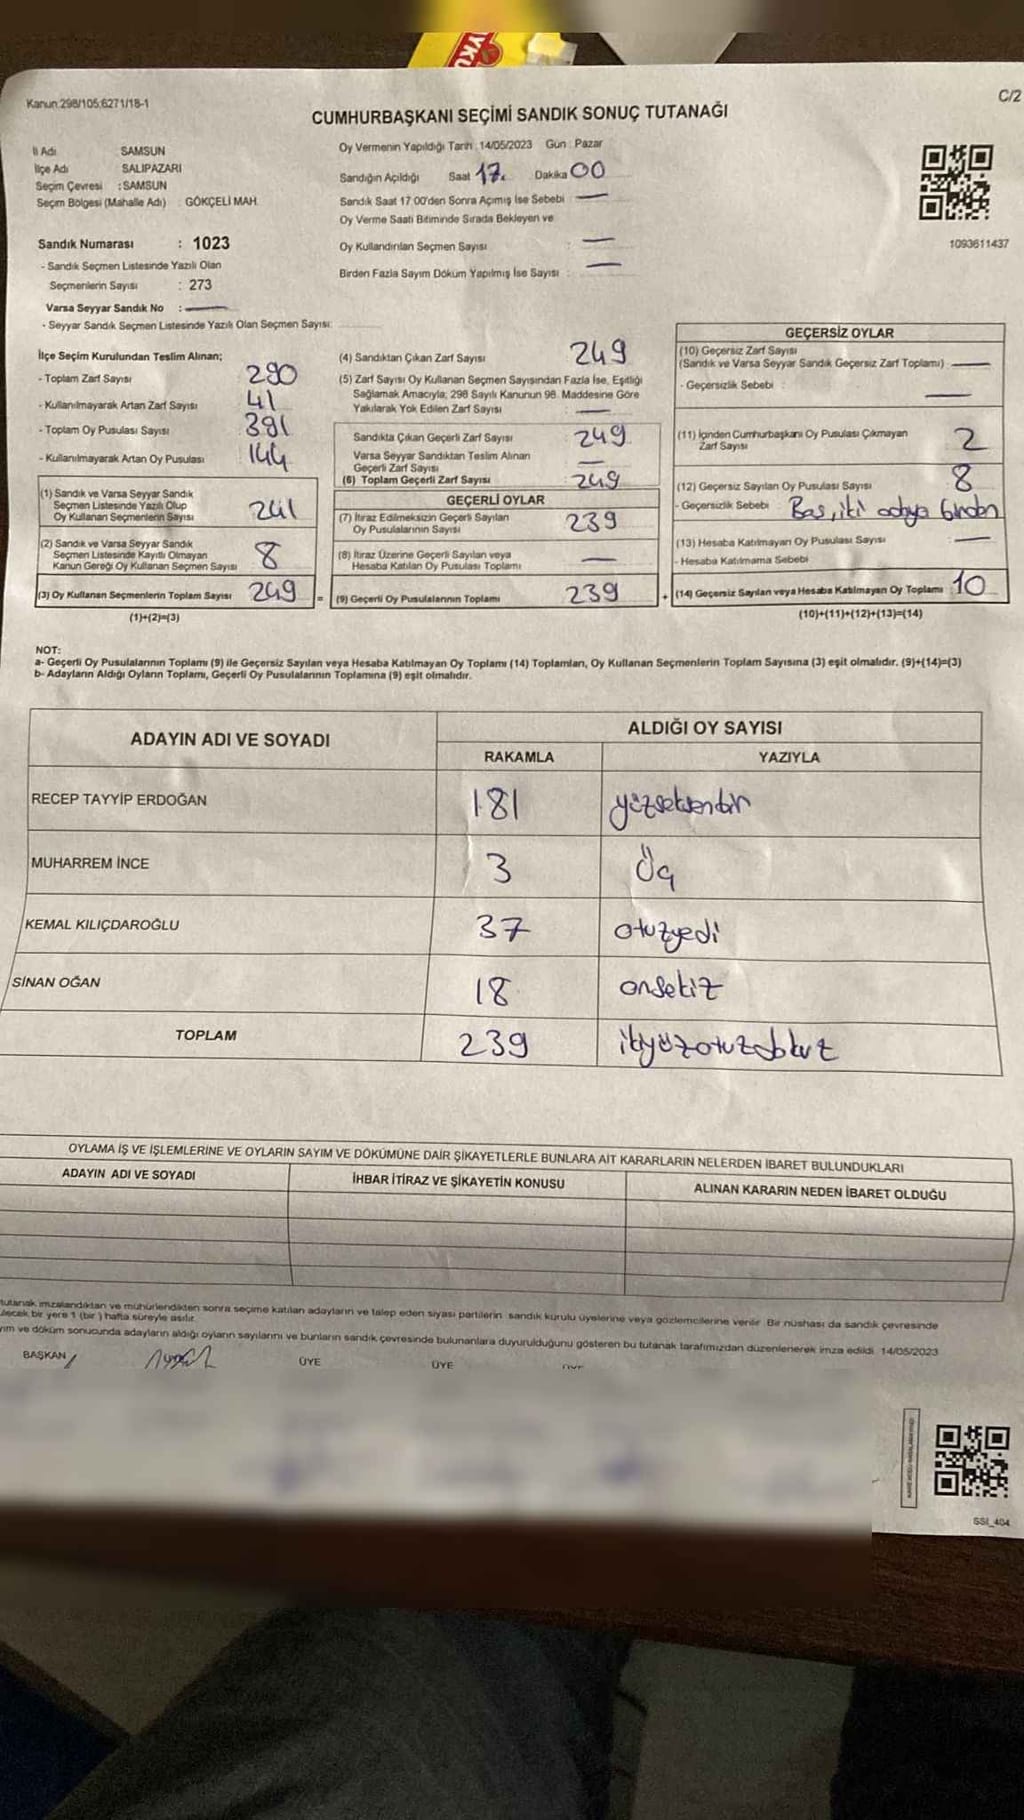 Kanun:298/105;6271/18-1
C/2
CUMHURBAŞKANI SEÇİMİ SANDIK SONUÇ TUTANAĞI
İl Adı SAMSUN
İlçe Adı SALIPAZARI
Seçim Çevresi : SAMSUN
Seçim Bölgesi (Mahalle Adı) GÖKÇELİ MAH.
Sandık Numarası : 1023
- Sandık Seçmen Listesinde Yazılı Olan
Seçmenlerin Sayısı : 273
Varsa Seyyar Sandık No :
- Seyyar Sandık Seçmen Listesinde Yazılı Olan Seçmen Sayısı:
Oy Vermenin Yapıldığı Tarih : 14/05/2023 Gün : Pazar
Sandığın Açıldığı Saat 17. Dakika 00
Sandık Saat 17.00'den Sonra Açımış İse Sebebi
Oy Verme Saati Bitiminde Sırada Bekleyen ve
Oy Kullandırılan Seçmen Sayısı :
Birden Fazla Sayım Döküm Yapılmış İse Sayısı :
1093611437
İlçe Seçim Kurulundan Teslim Alınan;
- Toplam Zarf Sayısı 290
- Kullanılmayarak Artan Zarf Sayısı 41
- Toplam Oy Pusulası Sayısı 391
- Kullanılmayarak Artan Oy Pusulası 144
(1) Sandık ve Varsa Seyyar Sandık
Seçmen Listesinde Yazılı Olup
Oy Kullanan Seçmenlerin Sayısı 241
(2) Sandık ve Varsa Seyyar Sandık
Seçmen Listesinde Kayıtlı Olmayan
Kanun Gereği Oy Kullanan Seçmen Sayısı 8
(3) Oy Kullanan Seçmenlerin Toplam Sayısı 249 =
(1)+(2)=(3)
(4) Sandıktan Çıkan Zarf Sayısı 249
(5) Zarf Sayısı Oy Kullanan Seçmen Sayısından Fazla İse, Eşitliği
Sağlamak Amacıyla; 298 Sayılı Kanunun 98. Maddesine Göre
Yakılarak Yok Edilen Zarf Sayısı
Sandıkta Çıkan Geçerli Zarf Sayısı 249
Varsa Seyyar Sandıktan Teslim Alınan
Geçerli Zarf Sayısı
(6) Toplam Geçerli Zarf Sayısı 249
GEÇERLİ OYLAR
(7) İtiraz Edilmeksizin Geçerli Sayılan
Oy Pusulalarının Sayısı 239
(8) İtiraz Üzerine Geçerli Sayılan veya
Hesaba Katılan Oy Pusulası Toplamı
(9) Geçerli Oy Pusulalarının Toplamı 239 +
GEÇERSİZ OYLAR
(10) Geçersiz Zarf Sayısı
(Sandık ve Varsa Seyyar Sandık Geçersiz Zarf Toplamı)
- Geçersizlik Sebebi :
(11) İçinden Cumhurbaşkanı Oy Pusulası Çıkmayan
Zarf Sayısı 2
(12) Geçersiz Sayılan Oy Pusulası Sayısı 8
- Geçersizlik Sebebi Boş, iki adaya birden
(13) Hesaba Katılmayan Oy Pusulası Sayısı
- Hesaba Katılmama Sebebi
(14) Geçersiz Sayılan veya Hesaba Katılmayan Oy Toplamı 10
(10)+(11)+(12)+(13)=(14)
NOT:
a- Geçerli Oy Pusulalarının Toplamı (9) ile Geçersiz Sayılan veya Hesaba Katılmayan Oy Toplamı (14) Toplamları, Oy Kullanan Seçmenlerin Toplam Sayısına (3) eşit olmalıdır. (9)+(14)=(3)
b- Adayların Aldığı Oyların Toplamı, Geçerli Oy Pusulalarının Toplamına (9) eşit olmalıdır.
ADAYIN ADI VE SOYADI ALDIĞI OY SAYISI
RAKAMLA YAZIYLA
RECEP TAYYİP ERDOĞAN 181 yüzseksenbir
MUHARREM İNCE 3 Üç
KEMAL KILIÇDAROĞLU 37 otuzyedi
SİNAN OĞAN 18 onsekiz
TOPLAM 239 ikiyüzotuzdokuz
OYLAMA İŞ VE İŞLEMLERİNE VE OYLARIN SAYIM VE DÖKÜMÜNE DAİR ŞİKAYETLERLE BUNLARA AİT KARARLARIN NELERDEN İBARET BULUNDUKLARI
ADAYIN ADI VE SOYADI İHBAR İTİRAZ VE ŞİKAYETİN KONUSU ALINAN KARARIN NEDEN İBARET OLDUĞU
tutanak imzalandıktan ve mühürlendikten sonra seçime katılan adayların ve talep eden siyasi partilerin sandık kurulu üyelerine veya gözlemcilerine verilir. Bir nüshası da sandık çevresinde
ilecek bir yere 1 (bir ) hafta süreyle asılır.
yım ve döküm sonucunda adayların aldığı oyların sayılarını ve bunların sandık çevresinde bulunanlara duyurulduğunu gösteren bu tutanak tarafımızdan düzenlenerek imza edildi. 14/05/2023
BAŞKAN ÜYE ÜYE
SSI_404